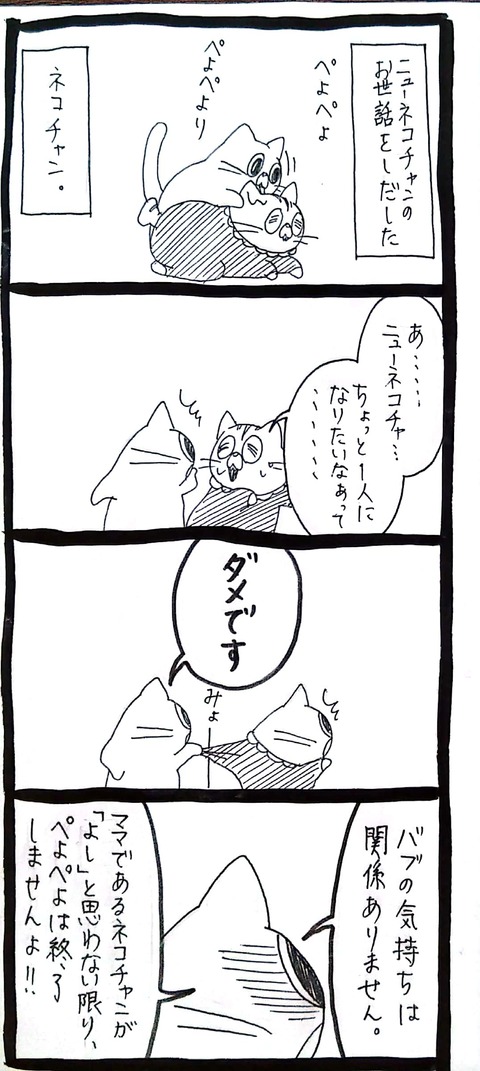 ニューネコチャンの
お世話をしだした
ぺよぺよ
ぺよぺより
ネコチャン。
あ……
ニューネコチャ…
ちょっと1人に
なりたいなぁって
……
ダメです
みょ
バブの気持ちは
関係ありません。
ママであるネコチャンが
「よし」と思わない限り、
ぺよぺよは終了
しませんよ!!